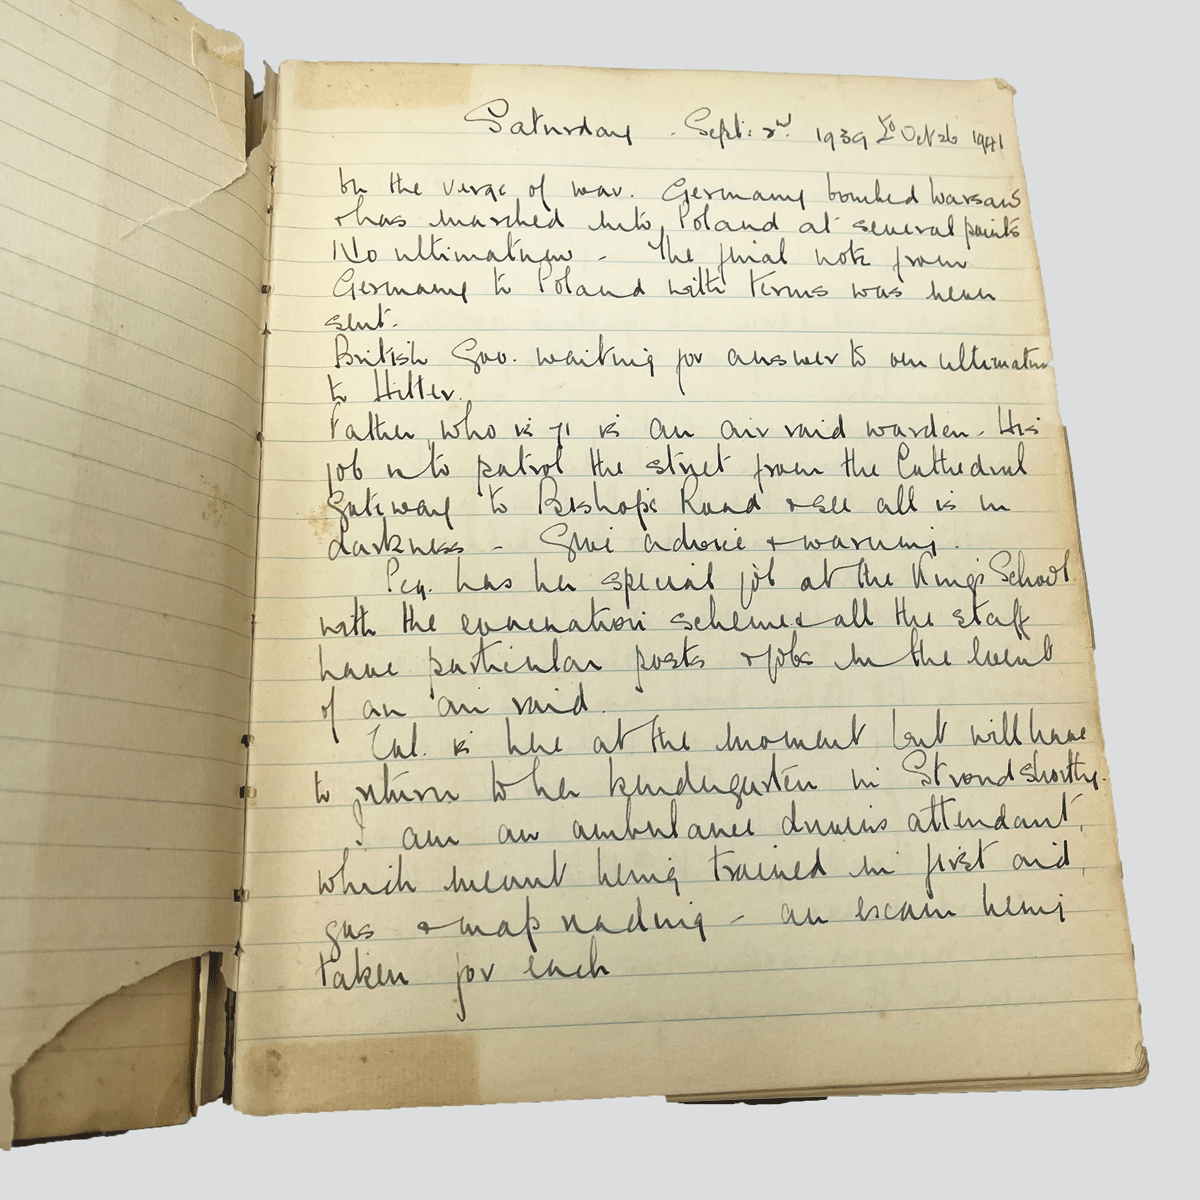 Saturday . Sept: 2nd. 1939 to Oct 26 1941
On the verge of war. Germany bombed Warsaw
& has marched into Poland at several points
No ultimatum - The final note from
Germany to Poland with terms was never
sent.
British Gov. waiting for answer to our ultimatum
to Hitler.
Father who is 71 is an air raid warden. His
job is to patrol the street from the Cathedral
Gateway to Bishop's Road & see all is in
darkness - Give advice & warning.
Peg. has her special job at the King's School
with the evacuation scheme & all the staff
have particular posts & jobs in the event
of an air raid.
is here at the moment but will have
to return to her kindergarten in Strood shortly.
I am an ambulance drivers attendant,
which meant being trained in first aid,
gas & map reading - an exam being
taken for each